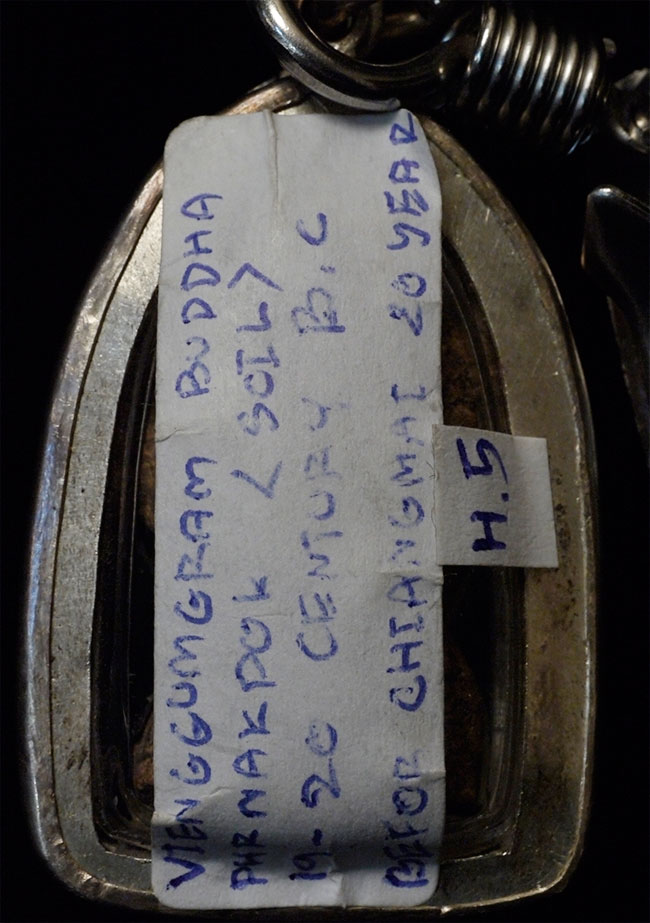 VIENGGUMGRAM BUDDHA
PHRNAKPOK <SOIL>
19-20 CENTURY B.C
BEFOR CHIANGMAI 20 YEAR
H.5